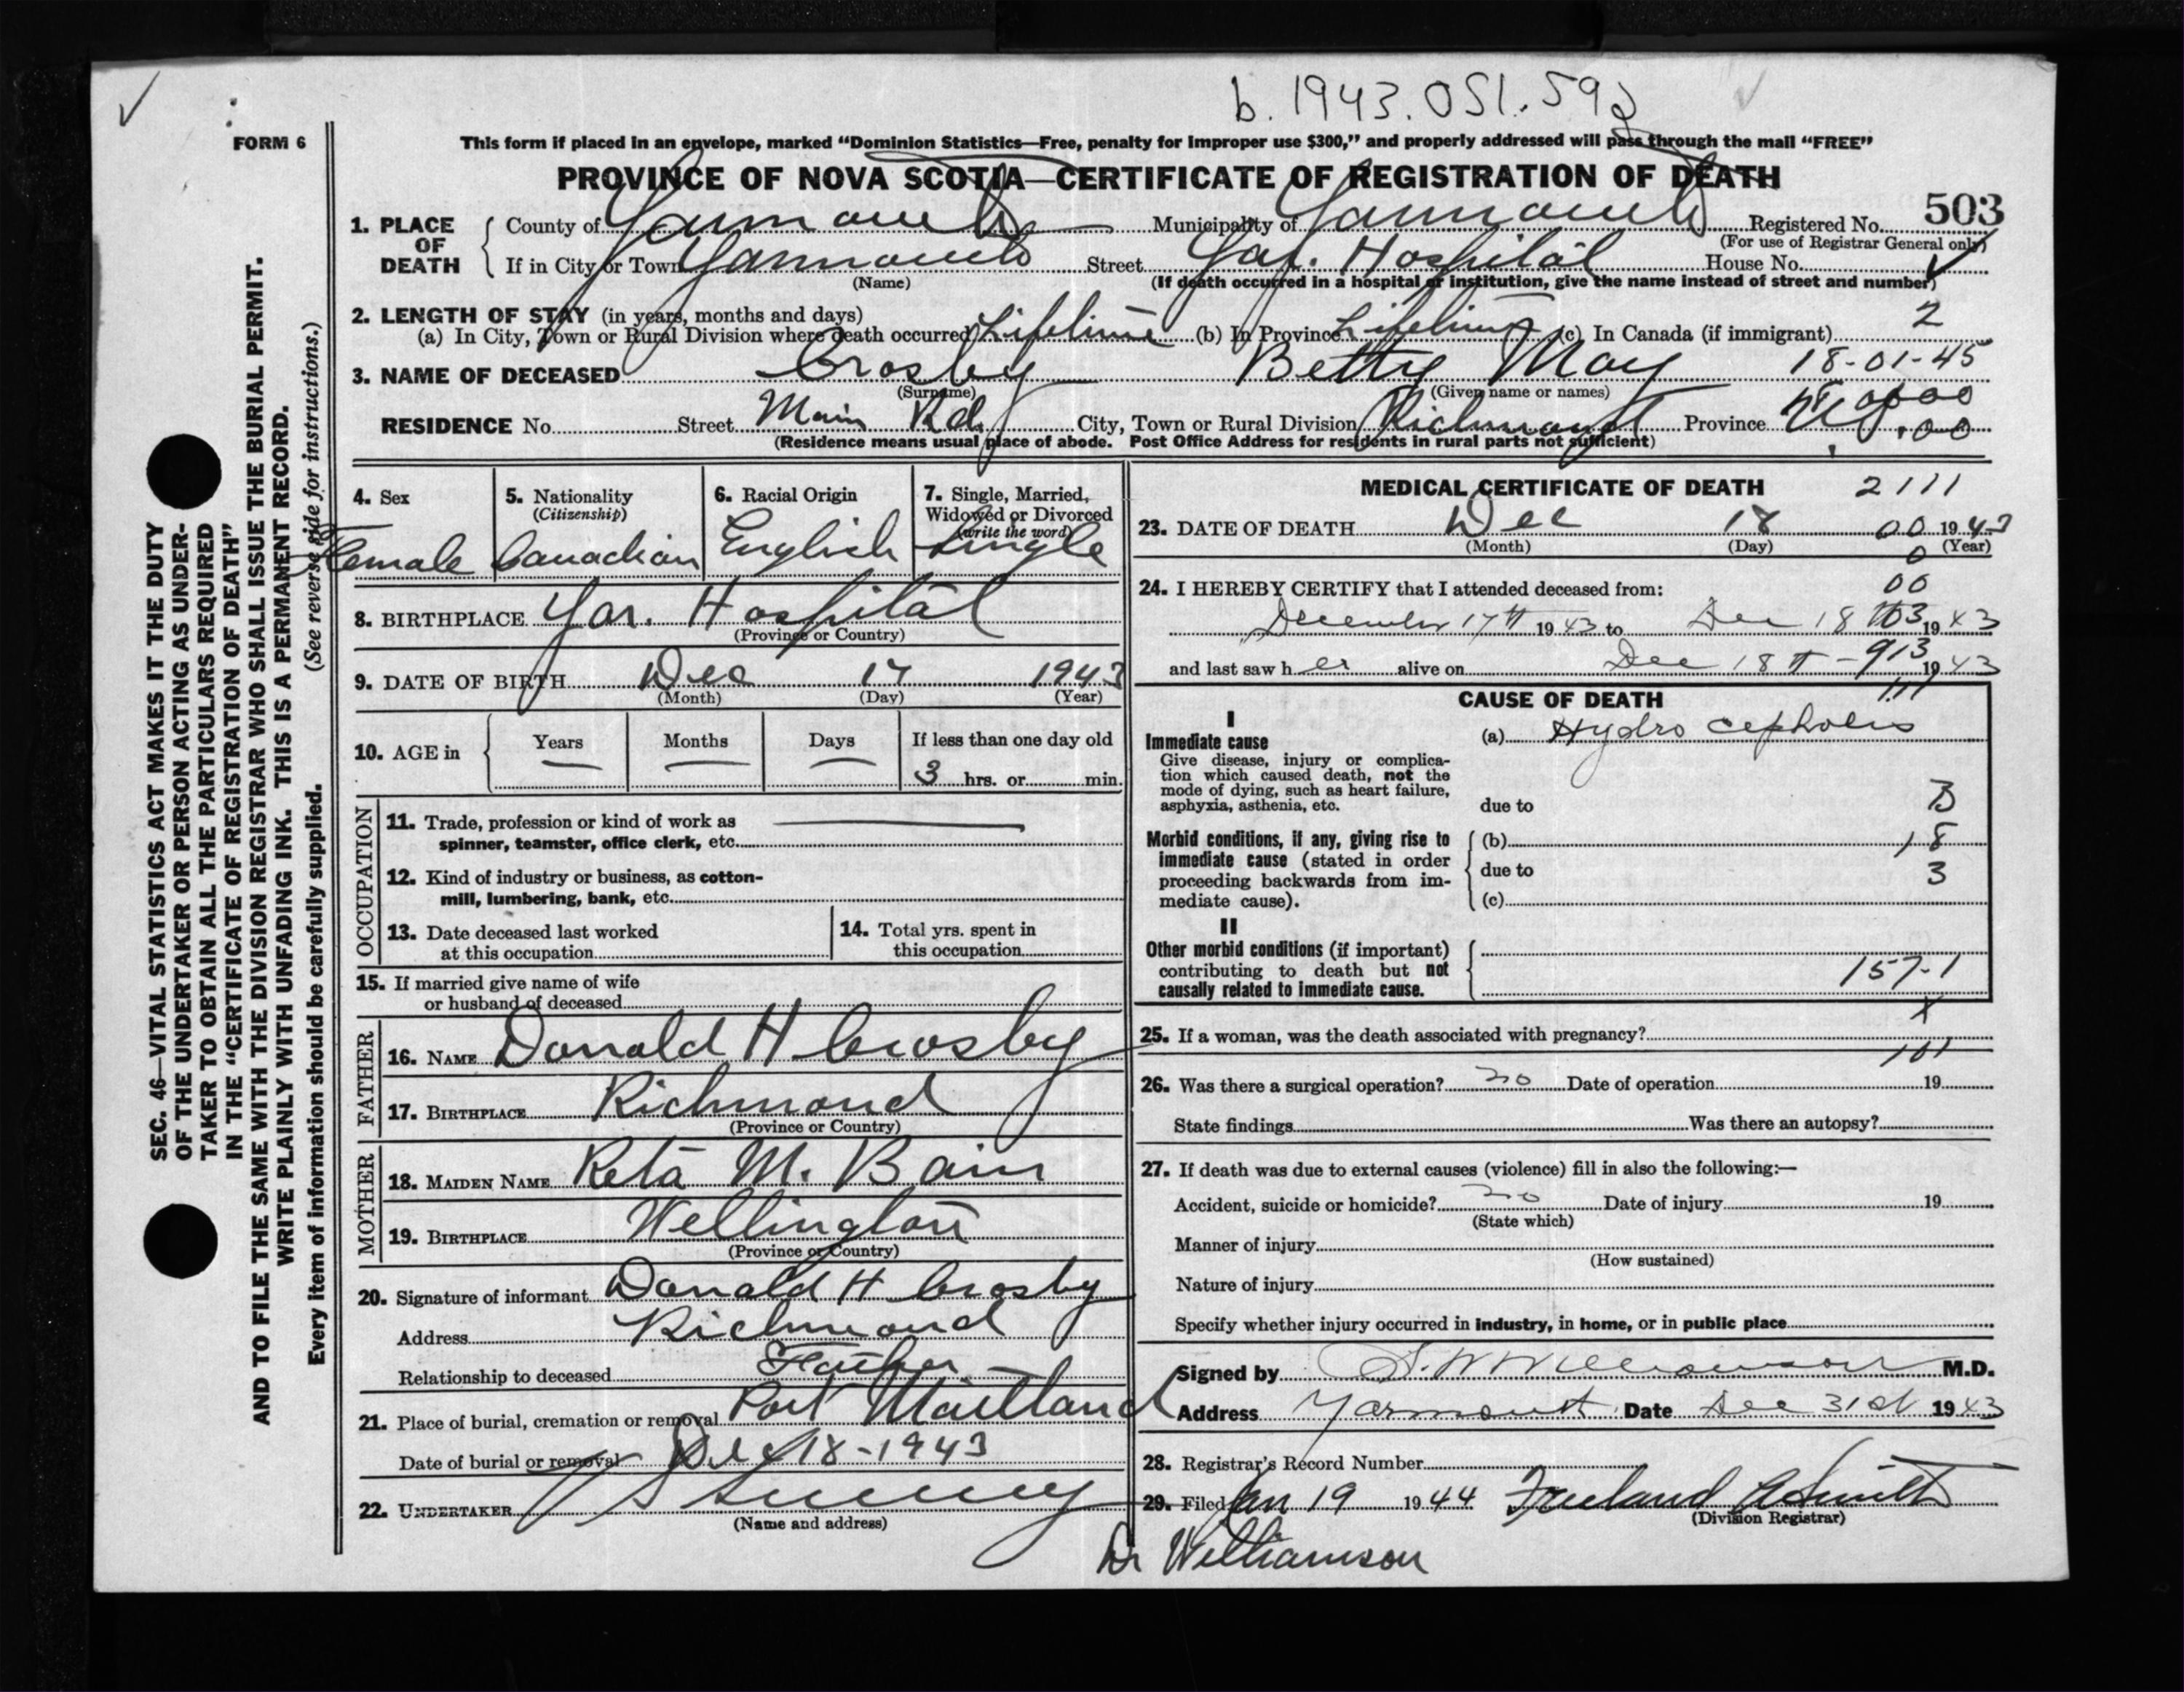 b. 1943.051.592
FORM 6
This form if placed in an envelope, marked “Dominion Statistics—Free, penalty for improper use $300,” and properly addressed will pass through the mail “FREE”
PROVINCE OF NOVA SCOTIA—CERTIFICATE OF REGISTRATION OF DEATH
503
1. PLACE OF DEATH County of Yarmouth Municipality of Yarmouth Registered No.
(For use of Registrar General only)
If in City or Town Yarmouth Street Yar. Hospital House No.
(Name) (If death occurred in a hospital or institution, give the name instead of street and number)
2. LENGTH OF STAY (in years, months and days)
(a) In City, Town or Rural Division where death occurred Lifetime (b) In Province Lifetime (c) In Canada (if immigrant) 2
3. NAME OF DECEASED Crosby Betty May 18-01-45
(Surname) (Given name or names)
RESIDENCE No. Street Main Rd. City, Town or Rural Division Richmond Province N.S.
(Residence means usual place of abode. Post Office Address for residents in rural parts not sufficient)
4. Sex Female
5. Nationality (Citizenship) Canadian
6. Racial Origin English
7. Single, Married, Widowed or Divorced (write the word) Single
8. BIRTHPLACE Yar. Hospital
(Province or Country)
9. DATE OF BIRTH Dec 17 1943
(Month) (Day) (Year)
10. AGE in Years — Months — Days — If less than one day old 3 hrs. or min.
OCCUPATION
11. Trade, profession or kind of work as spinner, teamster, office clerk, etc.
12. Kind of industry or business, as cotton-mill, lumbering, bank, etc.
13. Date deceased last worked at this occupation
14. Total yrs. spent in this occupation
15. If married give name of wife or husband of deceased
FATHER
16. NAME Donald H Crosby
17. BIRTHPLACE Richmond
(Province or Country)
MOTHER
18. MAIDEN NAME Reta M. Bain
19. BIRTHPLACE Wellington
(Province or Country)
20. Signature of informant Donald H Crosby
Address Richmond
Relationship to deceased Father
21. Place of burial, cremation or removal Port Maitland
Date of burial or removal Dec 18-1943
22. UNDERTAKER V S Sweeny
(Name and address)
MEDICAL CERTIFICATE OF DEATH 2111
23. DATE OF DEATH Dec 18 00 1943
(Month) (Day) (Year)
0
24. I HEREBY CERTIFY that I attended deceased from: 00
December 17th 1943 to Dec 18 th 1943
and last saw her alive on Dec 18th - 913 1943
111
CAUSE OF DEATH
I
Immediate cause (a) Hydro cepholus
Give disease, injury or complication which caused death, not the mode of dying, such as heart failure, asphyxia, asthenia, etc.
due to
Morbid conditions, if any, giving rise to immediate cause (stated in order proceeding backwards from immediate cause).
(b) 18
due to 3
(c)
II
Other morbid conditions (if important) contributing to death but not causally related to immediate cause.
157-1
x
25. If a woman, was the death associated with pregnancy?
101
26. Was there a surgical operation? no Date of operation 19
State findings Was there an autopsy?
27. If death was due to external causes (violence) fill in also the following:—
Accident, suicide or homicide? no Date of injury 19
(State which)
Manner of injury
(How sustained)
Nature of injury
Specify whether injury occurred in industry, in home, or in public place
Signed by S. W Williamson M.D.
Address Yarmouth Date Dec 31st 1943
28. Registrar's Record Number
29. Filed Jan 19 1944 Freeland A Smith
(Division Registrar)
Dr Williamson
SEC. 46—VITAL STATISTICS ACT MAKES IT THE DUTY
OF THE UNDERTAKER OR PERSON ACTING AS UNDER-
TAKER TO OBTAIN ALL THE PARTICULARS REQUIRED
IN THE “CERTIFICATE OF REGISTRATION OF DEATH”
AND TO FILE THE SAME WITH THE DIVISION REGISTRAR WHO SHALL ISSUE THE BURIAL PERMIT.
WRITE PLAINLY WITH UNFADING INK. THIS IS A PERMANENT RECORD.
Every item of information should be carefully supplied. (See reverse side for instructions.)